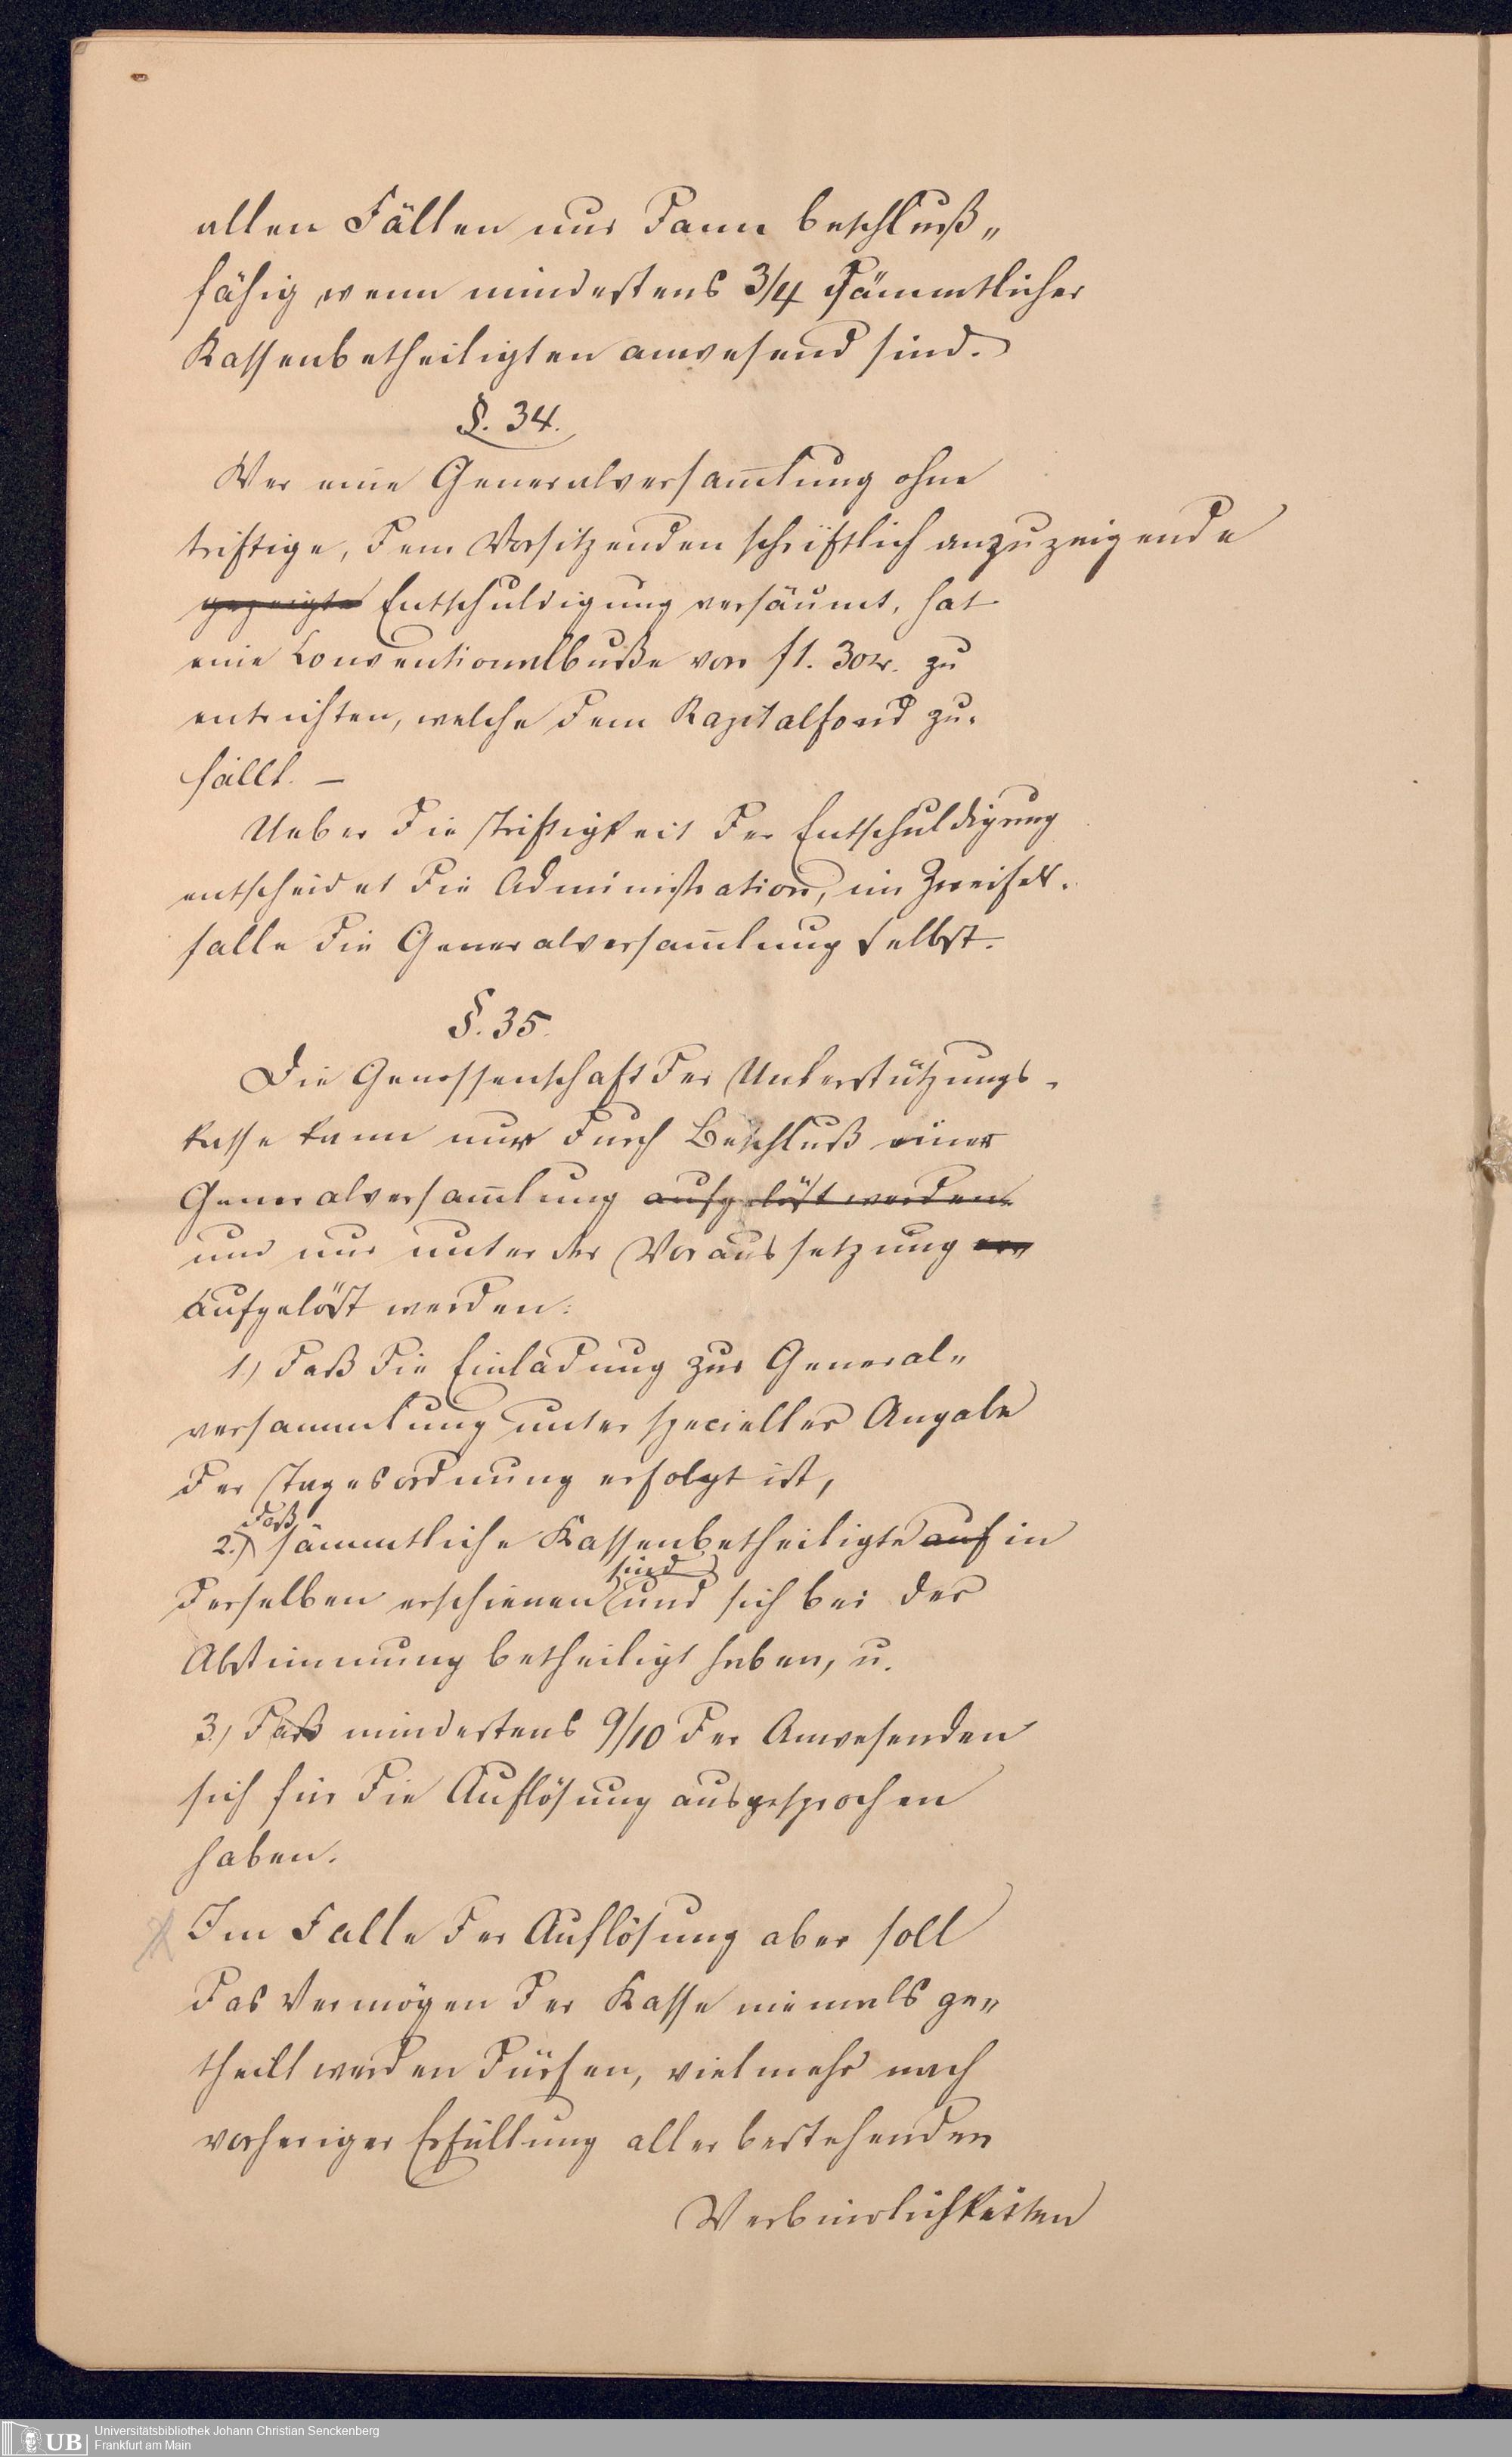 allen Fällen nur dann beschluß„
fähig, wenn mindestens 3/4 sämmtlicher
Kassenbetheiligten anwesend sind.
§. 34.
Wer eine Generalversam̄lung ohne
triftige, dem Vorsitzenden schriftlich anzuzeigende
gezeigte Entschuldigung versäumt, hat
eine Conventionalbuße von f 1. 30 kr. zu
entrichten, welche dem Kapitalfond zu-
fällt. –
Ueber die Triftigkeit der Entschuldigung
entscheidet die Administration, im Zweifels-
falle die Generalversam̄lung selbst.
§. 35.
Die Genossenschaft der Unterstützungs-
kasse kann nur durch Beschluß einer
Generalversam̄lung aufgelöst werden
und nur unter der Voraussetzung
aufgelöst werden:
1.) daß die Einladung zur General„
versammlung unter specieller Angabe
der Tagesordnung erfolgt ist,
daß
2.) sämmtliche Kassenbetheiligte auf in
sind
derselben erschienen und sich bei der
Abstimmung betheiligt haben, u.
3.) daß mindestens 9/10 der Anwesenden
sich für die Auflösung ausgesprochen
haben.
Im Falle der Auflösung aber soll
das Vermögen der Kasse niemals ge„
theilt werden dürfen, vielmehr nach
vorheriger Erfüllung aller bestehenden
Verbindlichkeiten
UB
Universitätsbibliothek Johann Christian Senckenberg
Frankfurt am Main